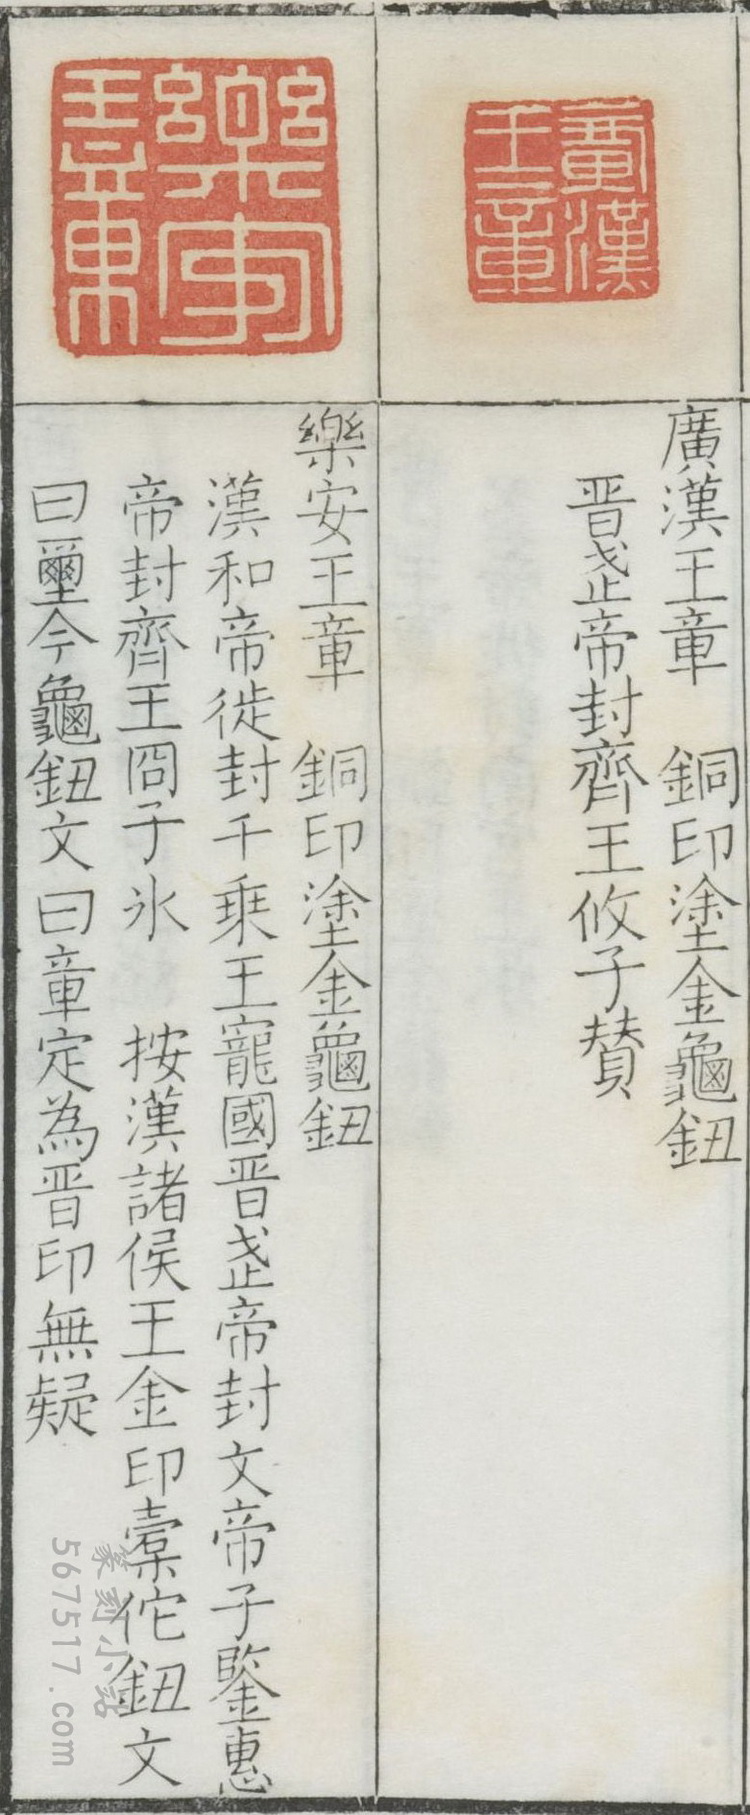 廣漢王章
廣漢王章　銅印塗金龜鈕
晋武帝封齊王攸子賛
樂安王章
樂安王章　銅印塗金龜鈕
漢和帝徙封千乗王寵國晋武帝封文帝子鑒惠
帝封齊王冏子氷　按漢諸侯王金印橐佗鈕文
曰璽今龜鈕文曰章定為晋印無疑
篆刻小站
567517.com